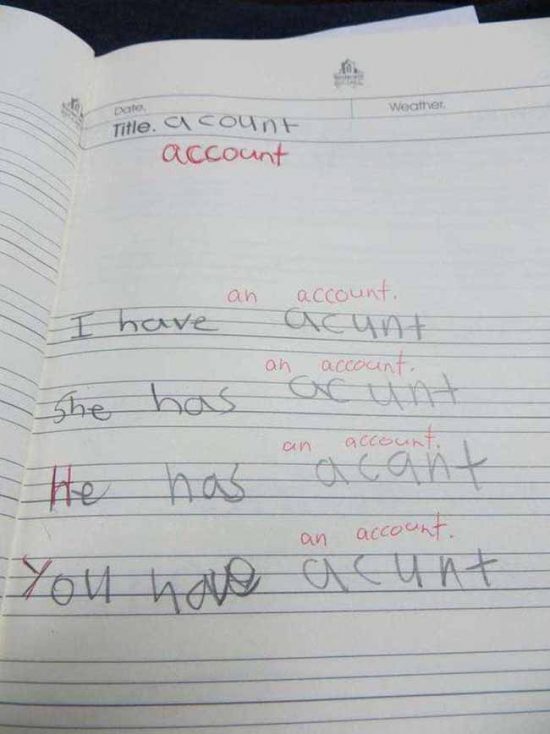 Date. Weather.
Title. acount
account
an account.
I have acunt
an account.
She has acunt
an account.
He has acant
an account.
You have acunt